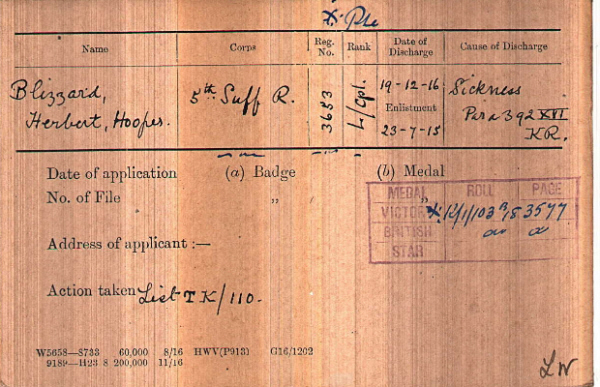 X. Pte
Name Corps Reg. No. Rank Date of Discharge Cause of Discharge
Blizzard, 5th Suff R. 3653 L/Cpl. 19-12-16 Sickness
Herbert, Hooper. Enlistment Para 392 XVI
23-7-15 KR.
Date of application (a) Badge (b) Medal
No. of File „ „
MEDAL ROLL PAGE
VICTORY X. K/1/103 B18 3577
BRITISH do do
STAR
Address of applicant :—
Action taken List TK/110.
W5658—S733 60,000 8/16 HWV(P913) G16/1202
9189—H23 8 200,000 11/16
LW